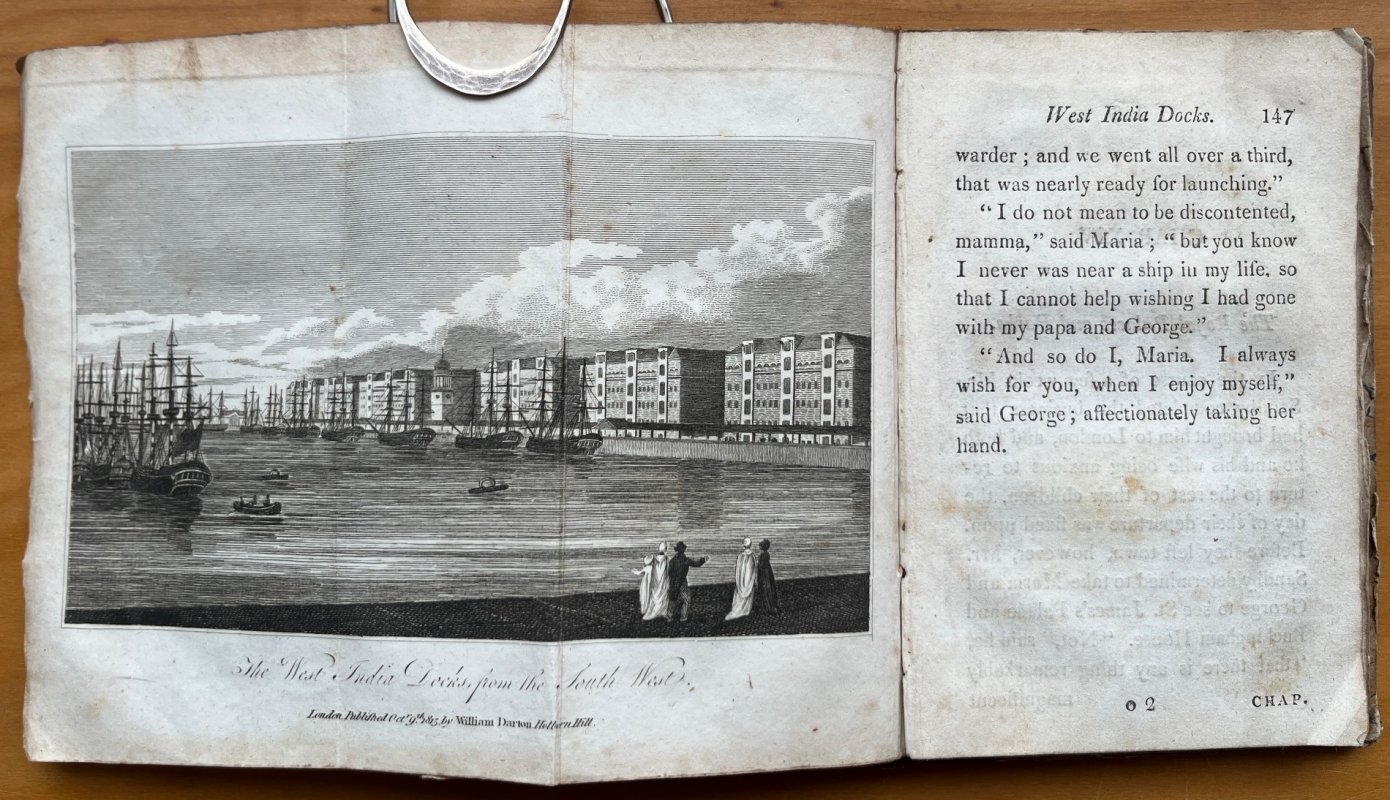 The West India Docks, from the South West.
London. Published Octr. 9th. 1815, by William Darton Holborn Hill.
West India Docks. 147
warder ; and we went all over a third,
that was nearly ready for launching.”
“ I do not mean to be discontented,
mamma,” said Maria ; “ but you know
I never was near a ship in my life, so
that I cannot help wishing I had gone
with my papa and George.”
“And so do I, Maria. I always
wish for you, when I enjoy myself,”
said George ; affectionately taking her
hand.
O 2 CHAP.